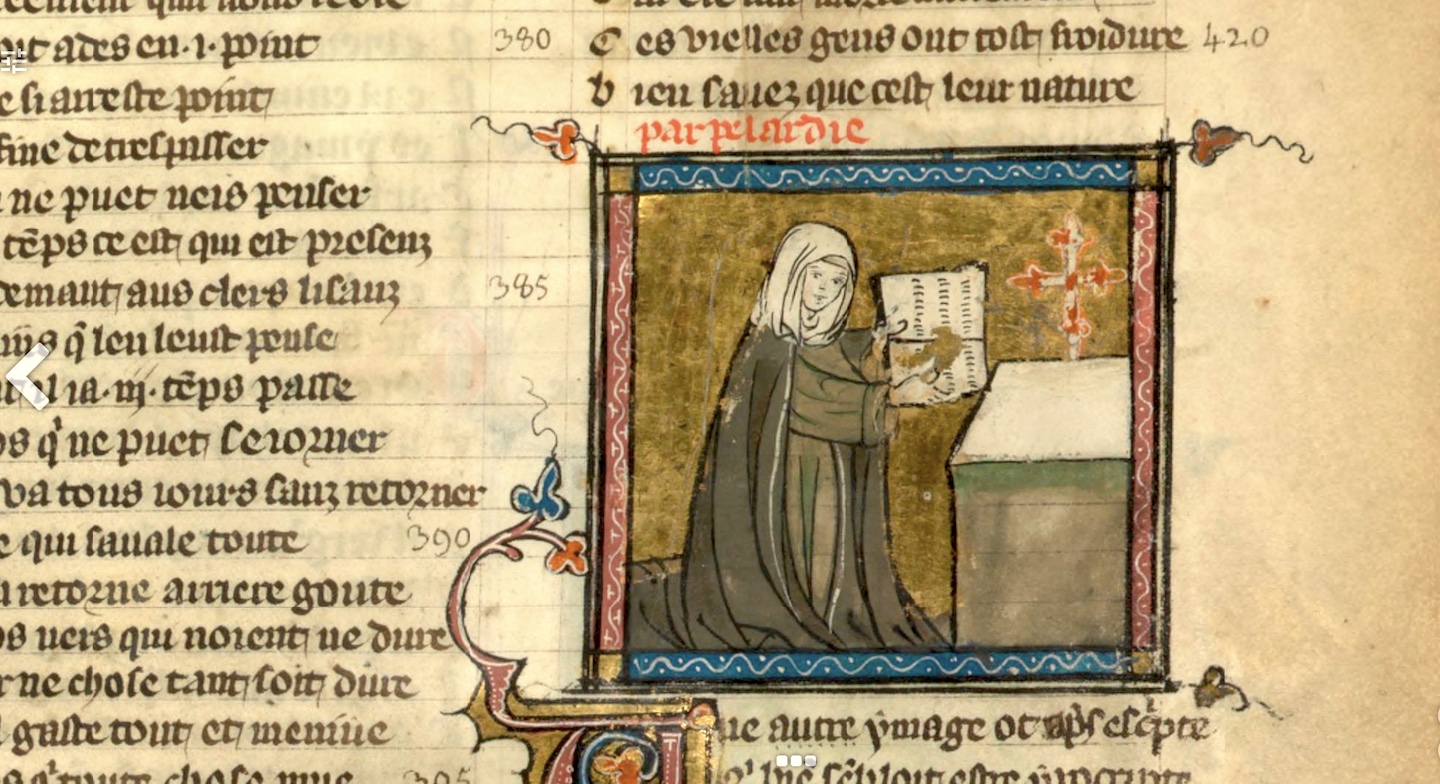 oit ades en .i. point 380
e si arreste point
fine de trespasser
ne puet neis penser
tēps ce est qui est presenz
demant aus clers lisanz 385
q̄ len leust pense
ia .iij. tēps passe
q̇ ne puet seiorner
va tous iours sanz retorner
e qui sauale toute 390
retorne arriere goute
os neis qui noient ne dure
r ne chose tant soit dure
gaste tout et meniue
toute chose mue 395
C es vielles gens ont tost froidure 420
B ien sauez que cest leur nature
par pelardie
ne autre ymage ot aps escpte